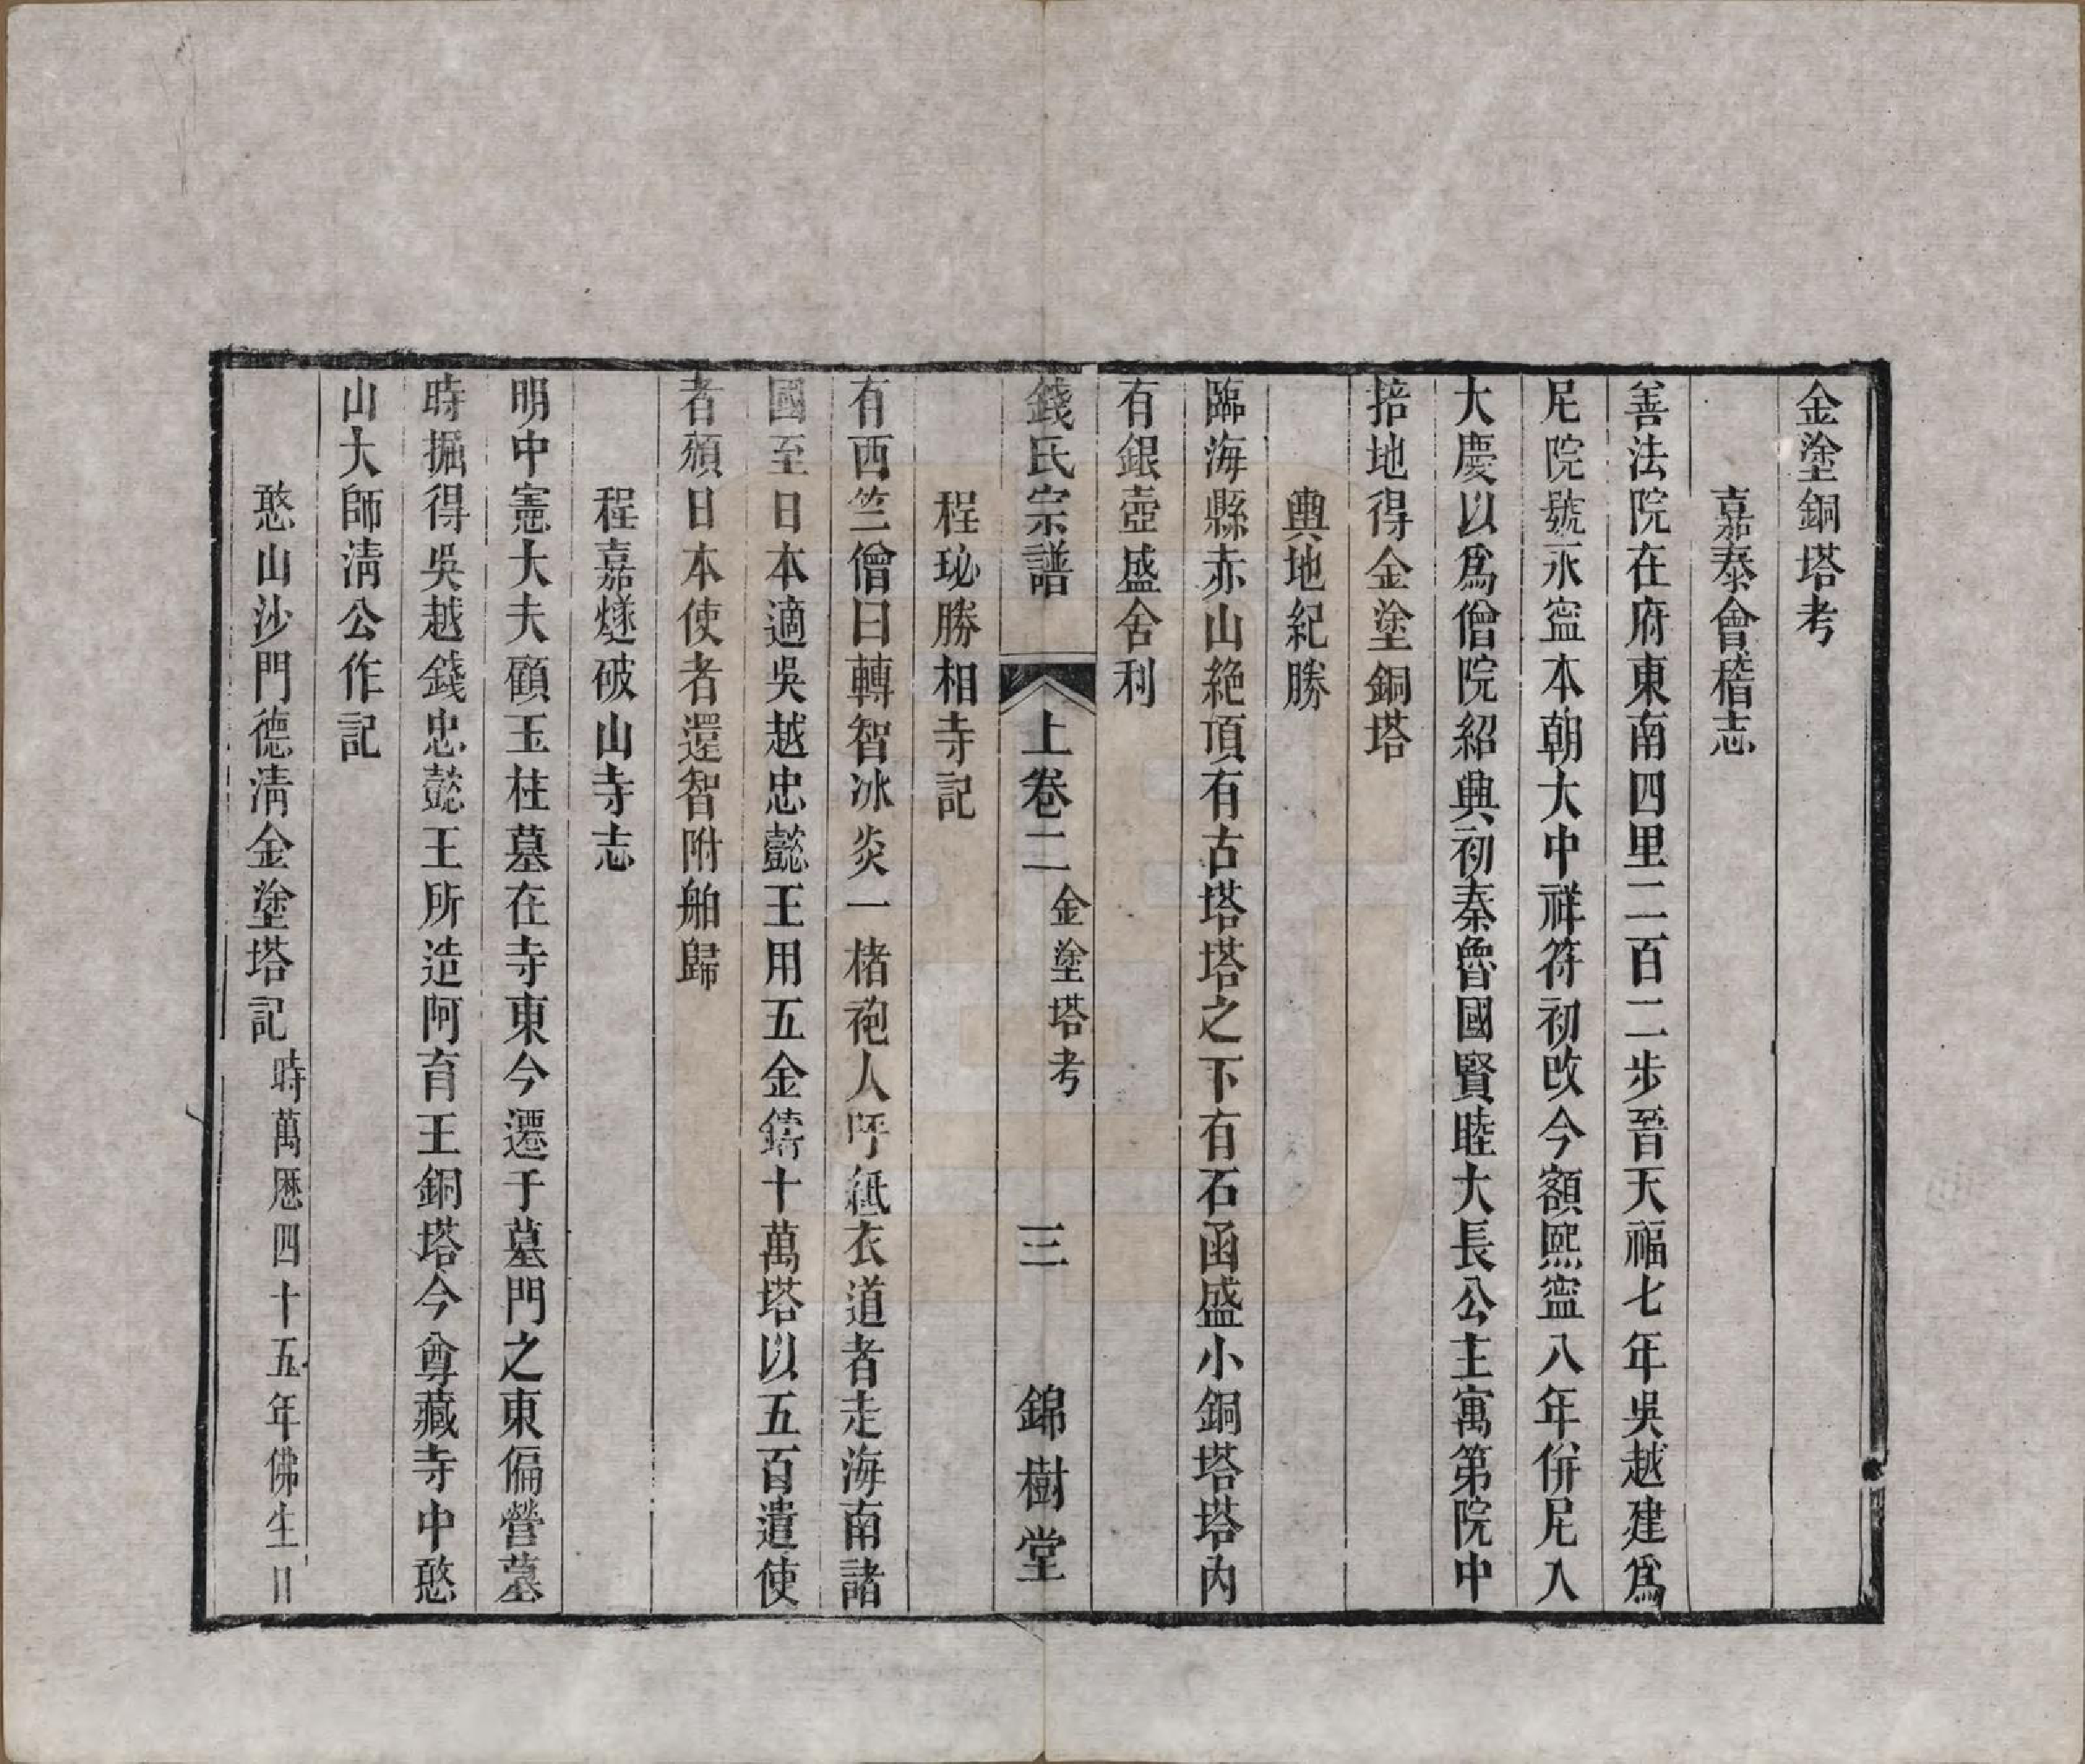 金塗銅塔考
嘉泰會稽志
善法院在府東南四里二百二步晉天福七年吳越建爲
尼院號永寍本朝大中祥符初改今額熙寍八年併尼入
大慶以爲僧院紹興初秦魯國賢睦大長公主寓第院中
掊地得金塗銅塔
輿地紀勝
臨海縣赤山絶頂有古塔塔之下有石函盛小銅塔塔內
有銀壺盛舍利
錢氏宗譜 上卷二 金塗塔考 三 錦樹堂
程珌勝相寺記
有西竺僧曰轉智冰炎一楮袍人呼紙衣道者走海南諸
國至日本適吳越忠懿王用五金鑄十萬塔以五百遣使
者頒日本使者還智附舶歸
程嘉燧破山寺志
明中憲大夫顧玉柱墓在寺東今遷于墓門之東偏營墓
時掘得吳越錢忠懿王所造阿育王銅塔今尊藏寺中憨
山大師清公作記
憨山沙門德清金塗塔記 時萬厯四十五年佛生日